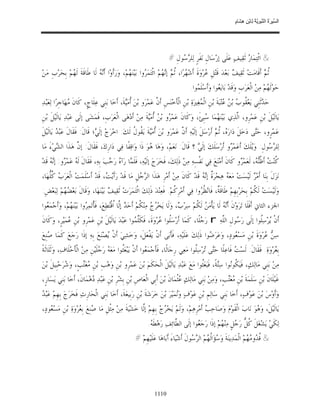 السّيرَةُ النّبَويّةُ لابْنِ هِشَامٍ
& ائْتِمَارُ ثَقِيفٍ عَلَى إرْسَالِ نَفَرٍ لِلرّسُولِ #
ثُمّ أَقَامَتْ ثَقِيفٌ بَعْدَ قَتْلِ عُرْوَةَ أَشْهُرًا، ثُمّ إنّهُمْ ائْتَمَرُوا بَيْنَهُمْ، وَرَأَوْا أَنّهُ لَا طَاقَةَ لَهُمْ بِحَرْبِ مَنْ
حَوْلَهُمْ مِنْ الْعَرَبِ وَقَدْ بَايَعُوا وَأَسْلَمُوا
حَدّثَنِي يَعْقُوبُ بْنُ عُتْبَةَ بْنِ الْمُغِيرَةِ بْنِ الْأَخْنَسِ أَنّ عَمْرَو بْنَ أُمَيّةَ، أَخَا بَنِي عِلَاجٍ، كَانَ مُهَاجِرًا لِعَبْدِ
يَالَيْلَ بْنِ عَمْرٍو، الّذِي بَيْنَهُمَا سَيّئٌ، وَكَانَ عَمْرُو بْنُ أُمَيّةَ مِنْ أَدْهَى الْعَرَبِ، فَمَشَى إلَى عَبْدِ يَالَيْلَ بْنِ
عَمْرٍو، حَتّى دَخَلَ دَارَهُ، ثُمّ أَرْسَلَ إلَيْهِ أَنّ عَمْرَو بْنَ أُمَيّةَ يَقُولُ لَكَ اُخْرُجْ إلَيّ؛ قَالَ: فَقَالَ عَبْدُ يَالَيْلَ
لِلرّسُولِ وَيْلَكَ أَعَمْرٌو أَرْسَلَكَ إلَيّ ؟ قَالَ: نَعَمْ، وَهَا هُوَ ذَا وَاقِفًا فِي دَارِكَ، فَقَالَ: إنّ هَذَا الشّيْءَ مَا
كُنْت أَظُنّهُ، لَعَمْرٌو كَانَ أَمْنَعَ فِي نَفْسِهِ مِنْ ذَلِكَ، فَخَرَجَ إلَيْهِ، فَلَمّا رَآهُ رَحّبَ بِهِ، فَقَالَ لَهُ عَمْرٌو إنّهُ قَدْ
نَزَلَ بِنَا أَمْرٌ لَيْسَتْ مَعَهُ هِجْرَةٌ إنّهُ قَدْ كَانَ مِنْ أَمْرِ هَذَا الرّجُلِ مَا قَدْ رَأَيْتَ، قَدْ أَسْلَمَتْ الْعَرَبُ كُلّهَا،
وَلَيْسَتْ لَكُمْ بِحَرْبِهِمْ طَاقَةٌ، فَانْظُرُوا فِي أَمْرِكُمْ فَعِنْدَ ذَلِكَ ائْتَمَرَتْ ثَقِيفٌ بَيْنَهَا، وَقَالَ بَعْضُهُمْ لِبَعْضٍ
الجزء الثاني أَفَلَا تَرَوْنَ أَنّهُ لَا يَأْمَنُ لَكُمْ سِرْبٌ، وَلَا يَخْرُجُ مِنْكُمْ أَحَدٌ إلّا اُقْتُطِعَ، فَأْتَمِرُوا بَيْنَهُمْ، وَأَجْمَعُوا
أَنْ يُرْسِلُوا إلَى رَسُولِ اللّهِ ﷺ رَجُلًا، كَمَا أَرْسَلُوا عُرْوَةَ، فَكَلّمُوا عَبْدَ يَالَيْلَ بْنَ عَمْرِو بْنِ عُمَيْرٍ، وَكَانَ
سِنّ عُرْوَةَ بْنِ مَسْعُودٍ، وَعَرَضُوا ذَلِكَ عَلَيْهِ، فَأَبَى أَنْ يَفْعَلَ، وَخَشِيَ أَنْ يُصْنَعَ بِهِ إذَا رَجَعَ كَمَا صُنِعَ
بِعُرْوَةَ فَقَالَ: لَسْتُ فَاعِلًا حَتّى تُرْسِلُوا مَعِي رِجَالًا، فَأَجْمَعُوا أَنْ يَبْعَثُوا مَعَهُ رَجُلَيْنِ مِنْ الْأَحْلَافِ، وَثَلَاثَةً
مِنْ بَنِي مَالِكٍ، فَيَكُونُوا سِتّةً، فَبَعَثُوا مَعَ عَبْدِ يَالَيْلَ الْحَكَمَ بْنَ عَمْرِو بْنِ وَهْبِ بْنِ مُعَتّبٍ، وَشُرَحْبِيلَ بْنَ
غَيْلَانَ بْنِ سَلَمَةَ بْنِ مُعَتّبٍ، وَمِنْ بَنِي مَالِكٍ عُثْمَانَ بْنَ أَبِي الْعَاصِ بْنِ بِشْرِ بْنِ عَبْدِ دُهْمَانَ، أَخَا بَنِي يَسَارٍ،
وَأَوْسَ بْنَ عَوْفٍ، أَخَا بَنِي سَالِمِ بْنِ عَوْفٍ وَنُمَيْرَ بْنَ خَرَشَةَ بْنِ رَبِيعَةَ، أَخَا بَنِي الْحَارِثِ فَخَرَجَ بِهِمْ عَبْدُ
يَالَيْلَ، وَهُوَ نَابُ الْقَوْمِ وَصَاحِبُ أَمْرِهِمْ، وَلَمْ يَخْرُجْ بِهِمْ إلّا خَشْيَةَ مِنْ مِثْلِ مَا صُنِعَ بِعُرْوَةَ بْنِ مَسْعُودٍ،
لِكَيْ يَشْغَلَ كُلّ رَجُلٍ مِنْهُمْ إذَا رَجَعُوا إلَى الطّائِفِ رَهْطَهُ
& قُدُومُهُمْ الْمَدِينَةَ وَسُؤَالُهُمْ الرّسُولَ أَشْيَاءَ أَبَاهَا عَلَيْهِمْ #
1110